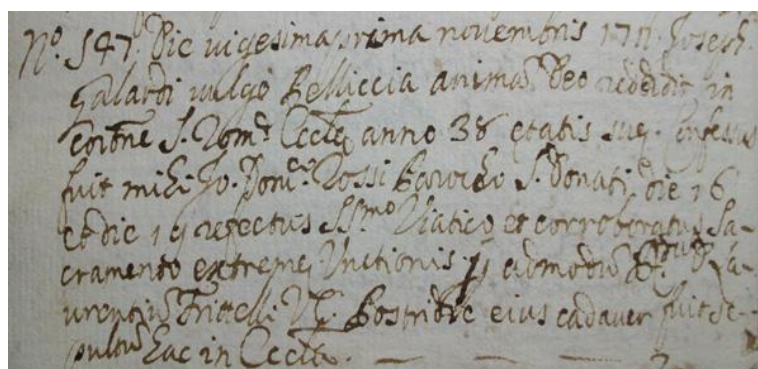 N.º 547. Die vigesima prima novembris 1711. Joseph
Galardi vulgo Pelliccia animã Deo reddidit in
coiõne S. Rom. Eccle anno 38 etatis sue. Confessus
fuit mihi Jo. Dom.co Rossi Parocho S. Donati die 16
et die 19 refectus SS.mo Viatico et corroboratus Sa-
cramento extreme Unctionis p admodũ Lá-
urentiũ Frittelli Postridie eius cadaver fuit se-
pultũ hac in Eccla.